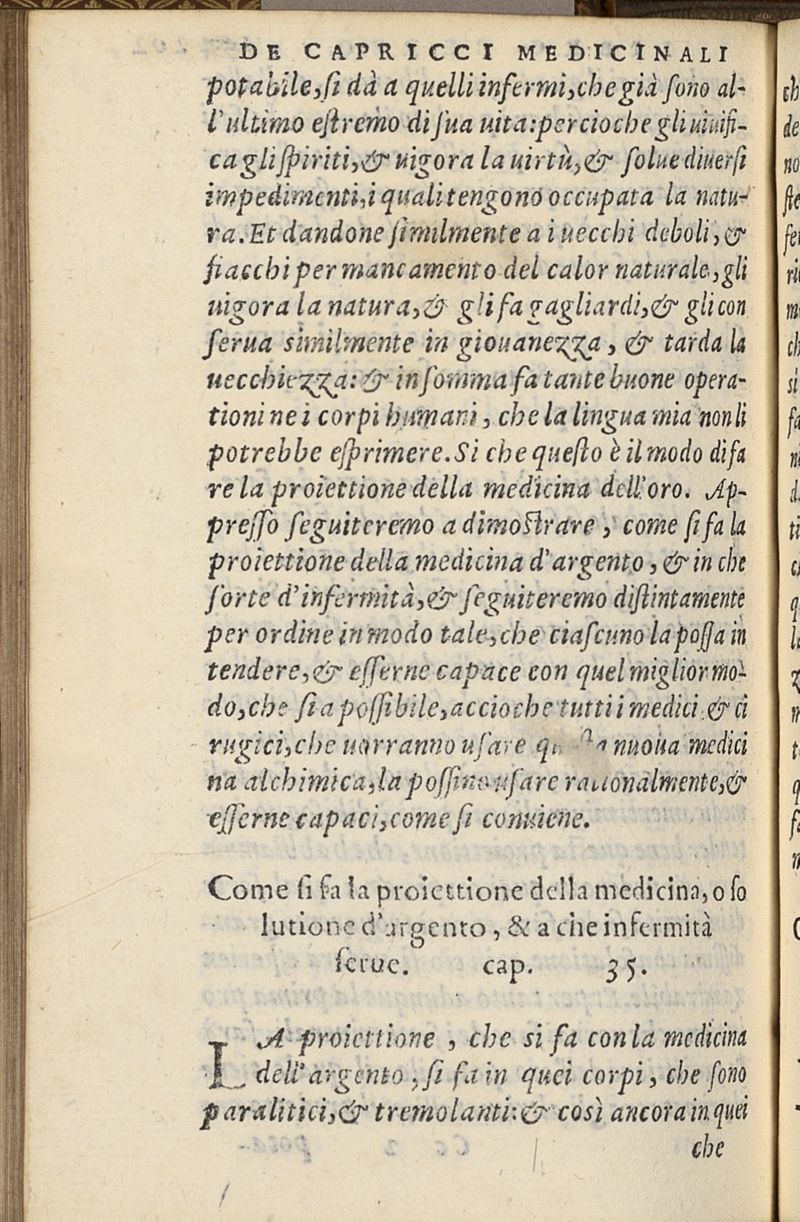 DE CAPRICCI MEDICINALI
potabile, ſi dà a quelli infermi, che già ſono al-
l'ultimo eſtremo di ſua uita: percioche gli uiuifi-
ca gli ſpiriti, & uigora la uirtù, & ſolue diuerſi
impedimenti, i quali tengono occupata la natu-
ra. Et dandone ſimilmente a i uecchi deboli, &
fiacchi per mancamento del calor naturale, gli
uigora la natura, & gli fa gagliardi, & gli con
ſerua similmente in giouanezza, & tarda la
uecchiezza: & in ſomma fa tante buone opera-
tioni ne i corpi humani, che la lingua mia non li
potrebbe eſprimere. Si che queſto è il modo di fa
re la proiettione della medicina dell'oro. Ap-
preſſo ſeguiteremo a dimoſtrare, come ſi fa la
proiettione della medicina d'argento, & in che
ſorte d'infermità, & ſeguiteremo diſtintamente
per ordine in modo tale, che ciaſcuno la poſſa in
tendere, & eſſerne capace con quel miglior mo-
do, che ſia poſſibile, accioche tutti i medici & ci
rugici, che uorranno uſare nuoua medici
na alchimica, la poſſino uſare rationalmente, &
eſſerne capaci, come ſi conuiene.
Come ſi fa la proiettione della medicina, o ſo
lutione d'argento, & a che infermità
ſerue. cap. 35.
LA proiettione, che si fa con la medicina
dell'argento, ſi fa in quei corpi, che ſono
paralitici, & tremolanti: & così ancora in quei
che